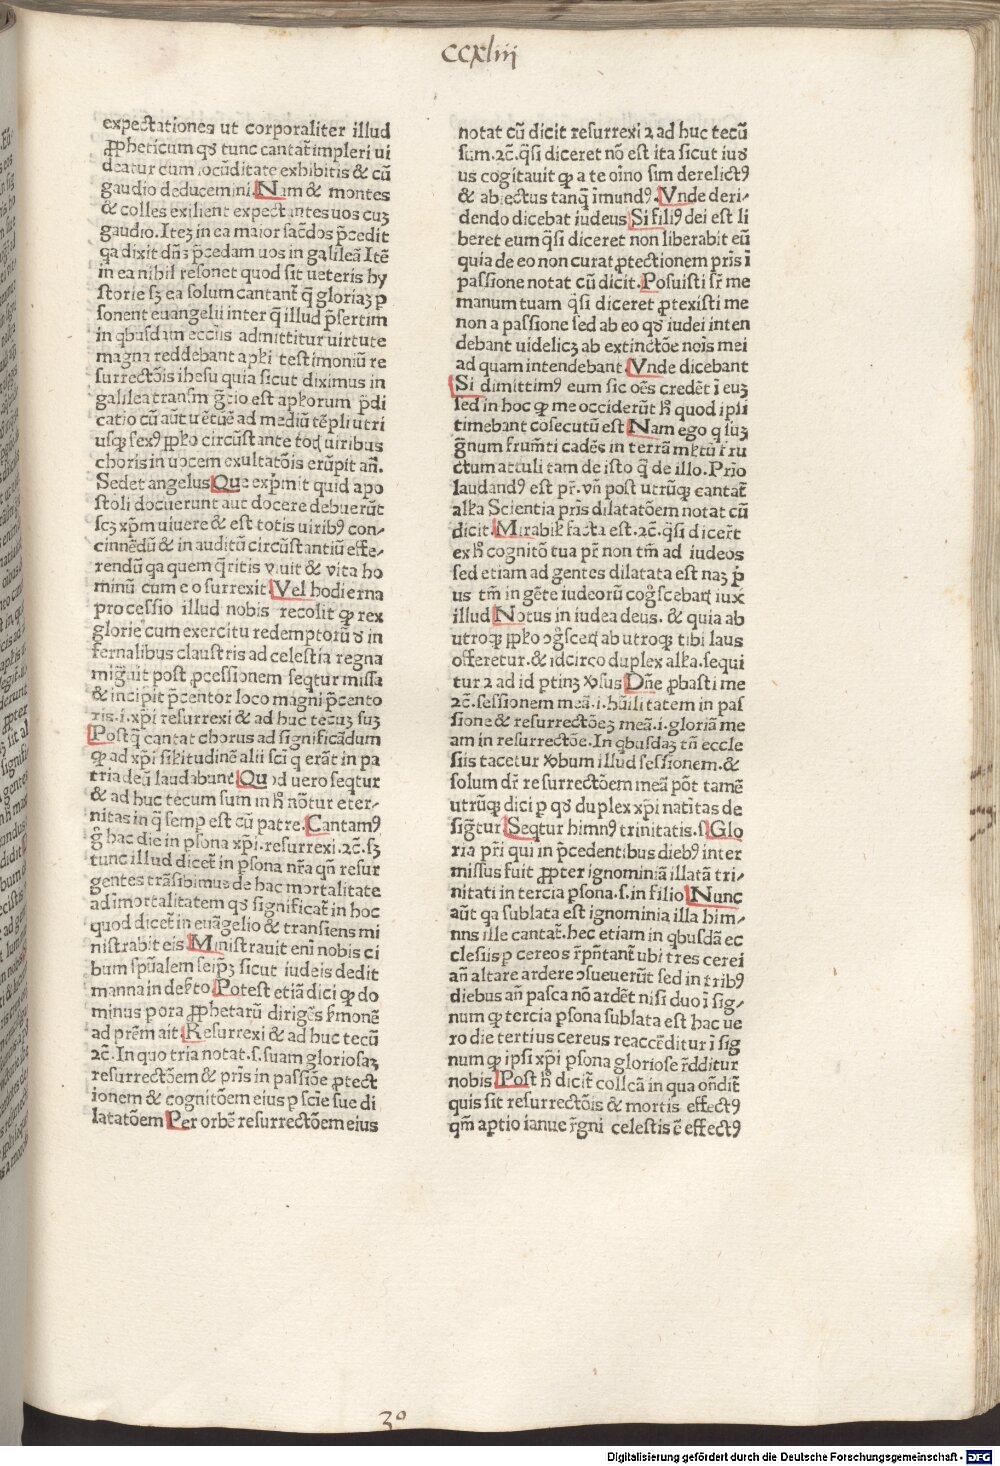 CCXliij
expectationes ut corporaliter illud
ꝓpheticum qď tunc cantat̄ impleri ui
deatur cum iocūditate exhibitis & cū
gaudio deducemini. Nam & montes
& colles exilient expectantes uos cuꝫ
gaudio. Iteꝫ in ea maior sac̄dos p̄cedit
qa dixit dn̄s p̄cedam uos in galileā Itē
in ea nihil resonet quod sit ueteris hy
storie sꝫ ea solum cantant̄ q̄ gloriaꝫ p
sonent euangelii inter q̄ illud p̄sertim
in qbusdam eccl̄iis admittitur uirtute
magna reddebant apl̄i testimoniū re
surrectōis ihesu quia sicut diximus in
galilea transm̄ ḡtio est apl̄orum p̄di
catio cū aūt uētuē ad mediū tēpli utri
usqꝫ sexꝰ ppl̄o circūstante totꝗ uiribus
choris in uocem exultatōis erūpit an̄.
Sedet angelus Que exp̄mit quid apo
stoli docuerunt aut docere debuerūt
scꝫ xp̄m uiuere & est totis uiribꝰ con-
cinnēdū & in auditū circūstantiū effe-
rendū qa quem q̄ritis uiuit & vita ho
minū cum eo surrexit. Vel hodierna
processio illud nobis recolit qꝫ rex
glorie cum exercitu redemptorū ď in
fernalibus claustris ad celestia regna
migͣuit post ꝓcessionem seqtur missa
& incipit p̄centor loco magni p̄cento
ris .i. xp̄i resurrexi & ad huc tecuꝫ suꝫ
Postq̄ cantat chorus ad significādum
qꝫ ad xp̄i sil̄itudinē alii sci q̄ erāt in pa
tria deū laudabant Quod uero seqtur
& ad huc tecum sum in h̄ nōtur eter-
nitas in q̄ semp est cū patre. Cantamꝰ
ḡ hac die in psona xp̄i. resurrexi. ⁊c̄. sꝫ
tunc illud dicet̄ in psona nr̄a qn̄ resur
gentes trāsibimus de hac mortalitate
ad imortalitatem qď significat̄ in hoc
quod dicet̄ in euāgelio & transiens mi
nistrabit eis. Ministrauit eni nobis ci
bum spūalem seip̄ꝫ sicut iudeis dedit
manna in deſ̄to. Potest etiā dici qꝫ do
minus p ora ꝓphetarū dirigēs ſ̄monē
ad prēm ait. Resurrexi & ad huc tecū
⁊c̄. In quo tria notat .s. suam gloriosaꝫ
resurrectōem & pris̄ in passiōe ꝓtect
ionem & cognitōem eius p sciē sue di
latatōem Per orbē resurrectōem eius
notat cū dicit resurrexi ⁊ ad huc tecū
sum. ⁊c̄. q̄si diceret nō est ita sicut iud
us cogitauit qꝫ a te oi̅no sim derelictꝰ
& abiectus tanq̄ īmundꝰ. Vnde deri-
dendo dicebat iudeus Si filiꝰ dei est li
beret eum q̄si diceret non liberabit eū
quia de eo non curat ꝓtectionem pris̄ ī
passione notat cū dicit. Posuisti sr̄ me
manum tuam q̄si diceret ꝓtexisti me
non a passione sed ab eo qď iudei inten
debant uidelicꝫ ab extinctōe nois̄ mei
ad quam intendebant. Vnde dicebant
Si dimittimꝰ eum sic oēs credēt ī euꝫ
sed in hoc qꝫ me occiderūt h̄ quod ipsi
timebant cōsecutū est Nam ego q suꝫ
ḡnum frum̄ti cadēs in terrā mr̄tū fru
ctum attuli tam de isto q̄ de illo. Prīo
laudandꝰ est pr̄. vn̄ post utrūqꝫ cantat̄
all̄a Scientia pris̄ dilatatōem notat cū
dicit. Mirabil̄ facta est. ⁊c̄. q̄si dicer̄t
ex h̄ cognitō tua pr̄ non tm̄ ad iudeos
sed etiam ad gentes dilatata est naꝫ p̄
us tm̄ in gēte iudeorū cog̅scebaꝗ iux
illud Notus in iudea deus. & quia ab
utroqꝫ ppl̄o ↄg̅sceꝗ ab utroqꝫ tibi laus
offeretur. & idcirco duplex all̄a. sequi
tur ⁊ ad id ptinꝫ v̓sus Dn̄e ꝓbasti me
⁊c̄. sessionem meā .i. hūilitatem in pas
sione & resurrectōeꝫ meā .i. gloriā me
am in resurrectōe. In qbusdaꝫ tn̄ eccle
siis tacetur v̓bum illud sessionem. &
solum dr̄ resurrectōem meā pōt tamē
utrūqꝫ dici p qď duplex xp̄i nati̅tas de
sig̅tur Seqtur himnꝰ trinitatis. s. Glo
ria pr̄i qui in p̄cedentibus diebꝰ inter
missus fuit ꝓpter ignominiā illatā tri-
nitati in tercia psona. s. in filio Nunc
aūt qa sublata est ignominia illa him-
nns ille cantat̄. hec etiam in qbusdā ec
clesiis p cereos rp̄ntant̄ ubi tres cerei
an̄ altare ardere ↄsueuerūt sed in tribꝰ
diebus an̄ pasca nō ardēt nisi duo ī sig-
num qꝫ tercia psona sublata est hac ue
ro die tertius cereus reaccēditur ī sig
num qꝫ ipsi xp̄i psona gloriose r̄dditur
nobis. Post h̄ dicit̄ collcā in qua on̄dit̄
quis sit resurrectōis & mortis effectꝰ
qm̄ aptio ianue r̄gni celestis ē effectꝰ
3º
Digitalisierung gefördert durch die Deutsche Forschungsgemeinschaft - DFG